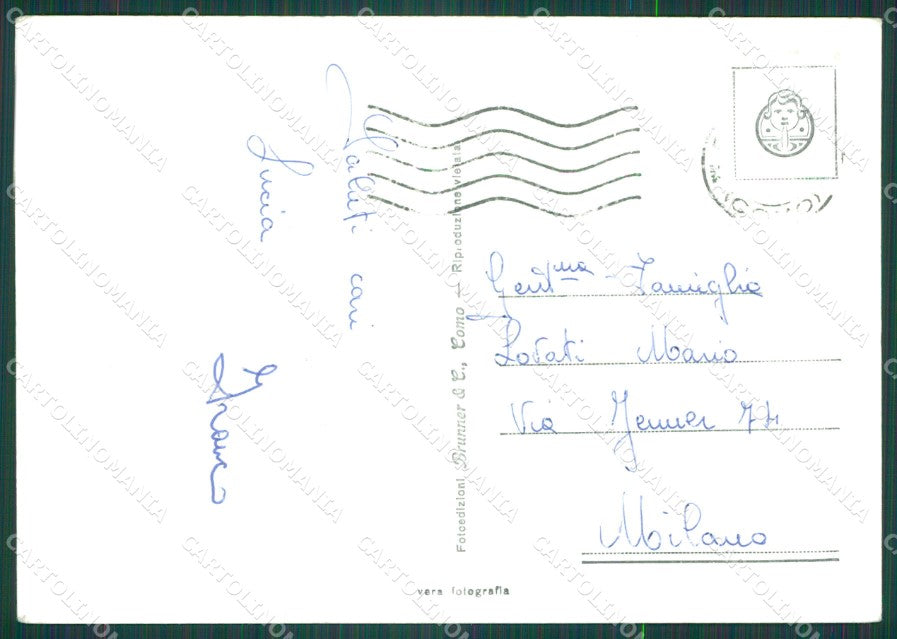 Saluti cari
Lucia
Franco
Fotoedizioni Brunner & C., Como — Riproduzione vietata
Gent.ma Famiglia
Lovati Mario
Via Jenner 74
Milano
vera fotografia
CARTOLINOMANIA